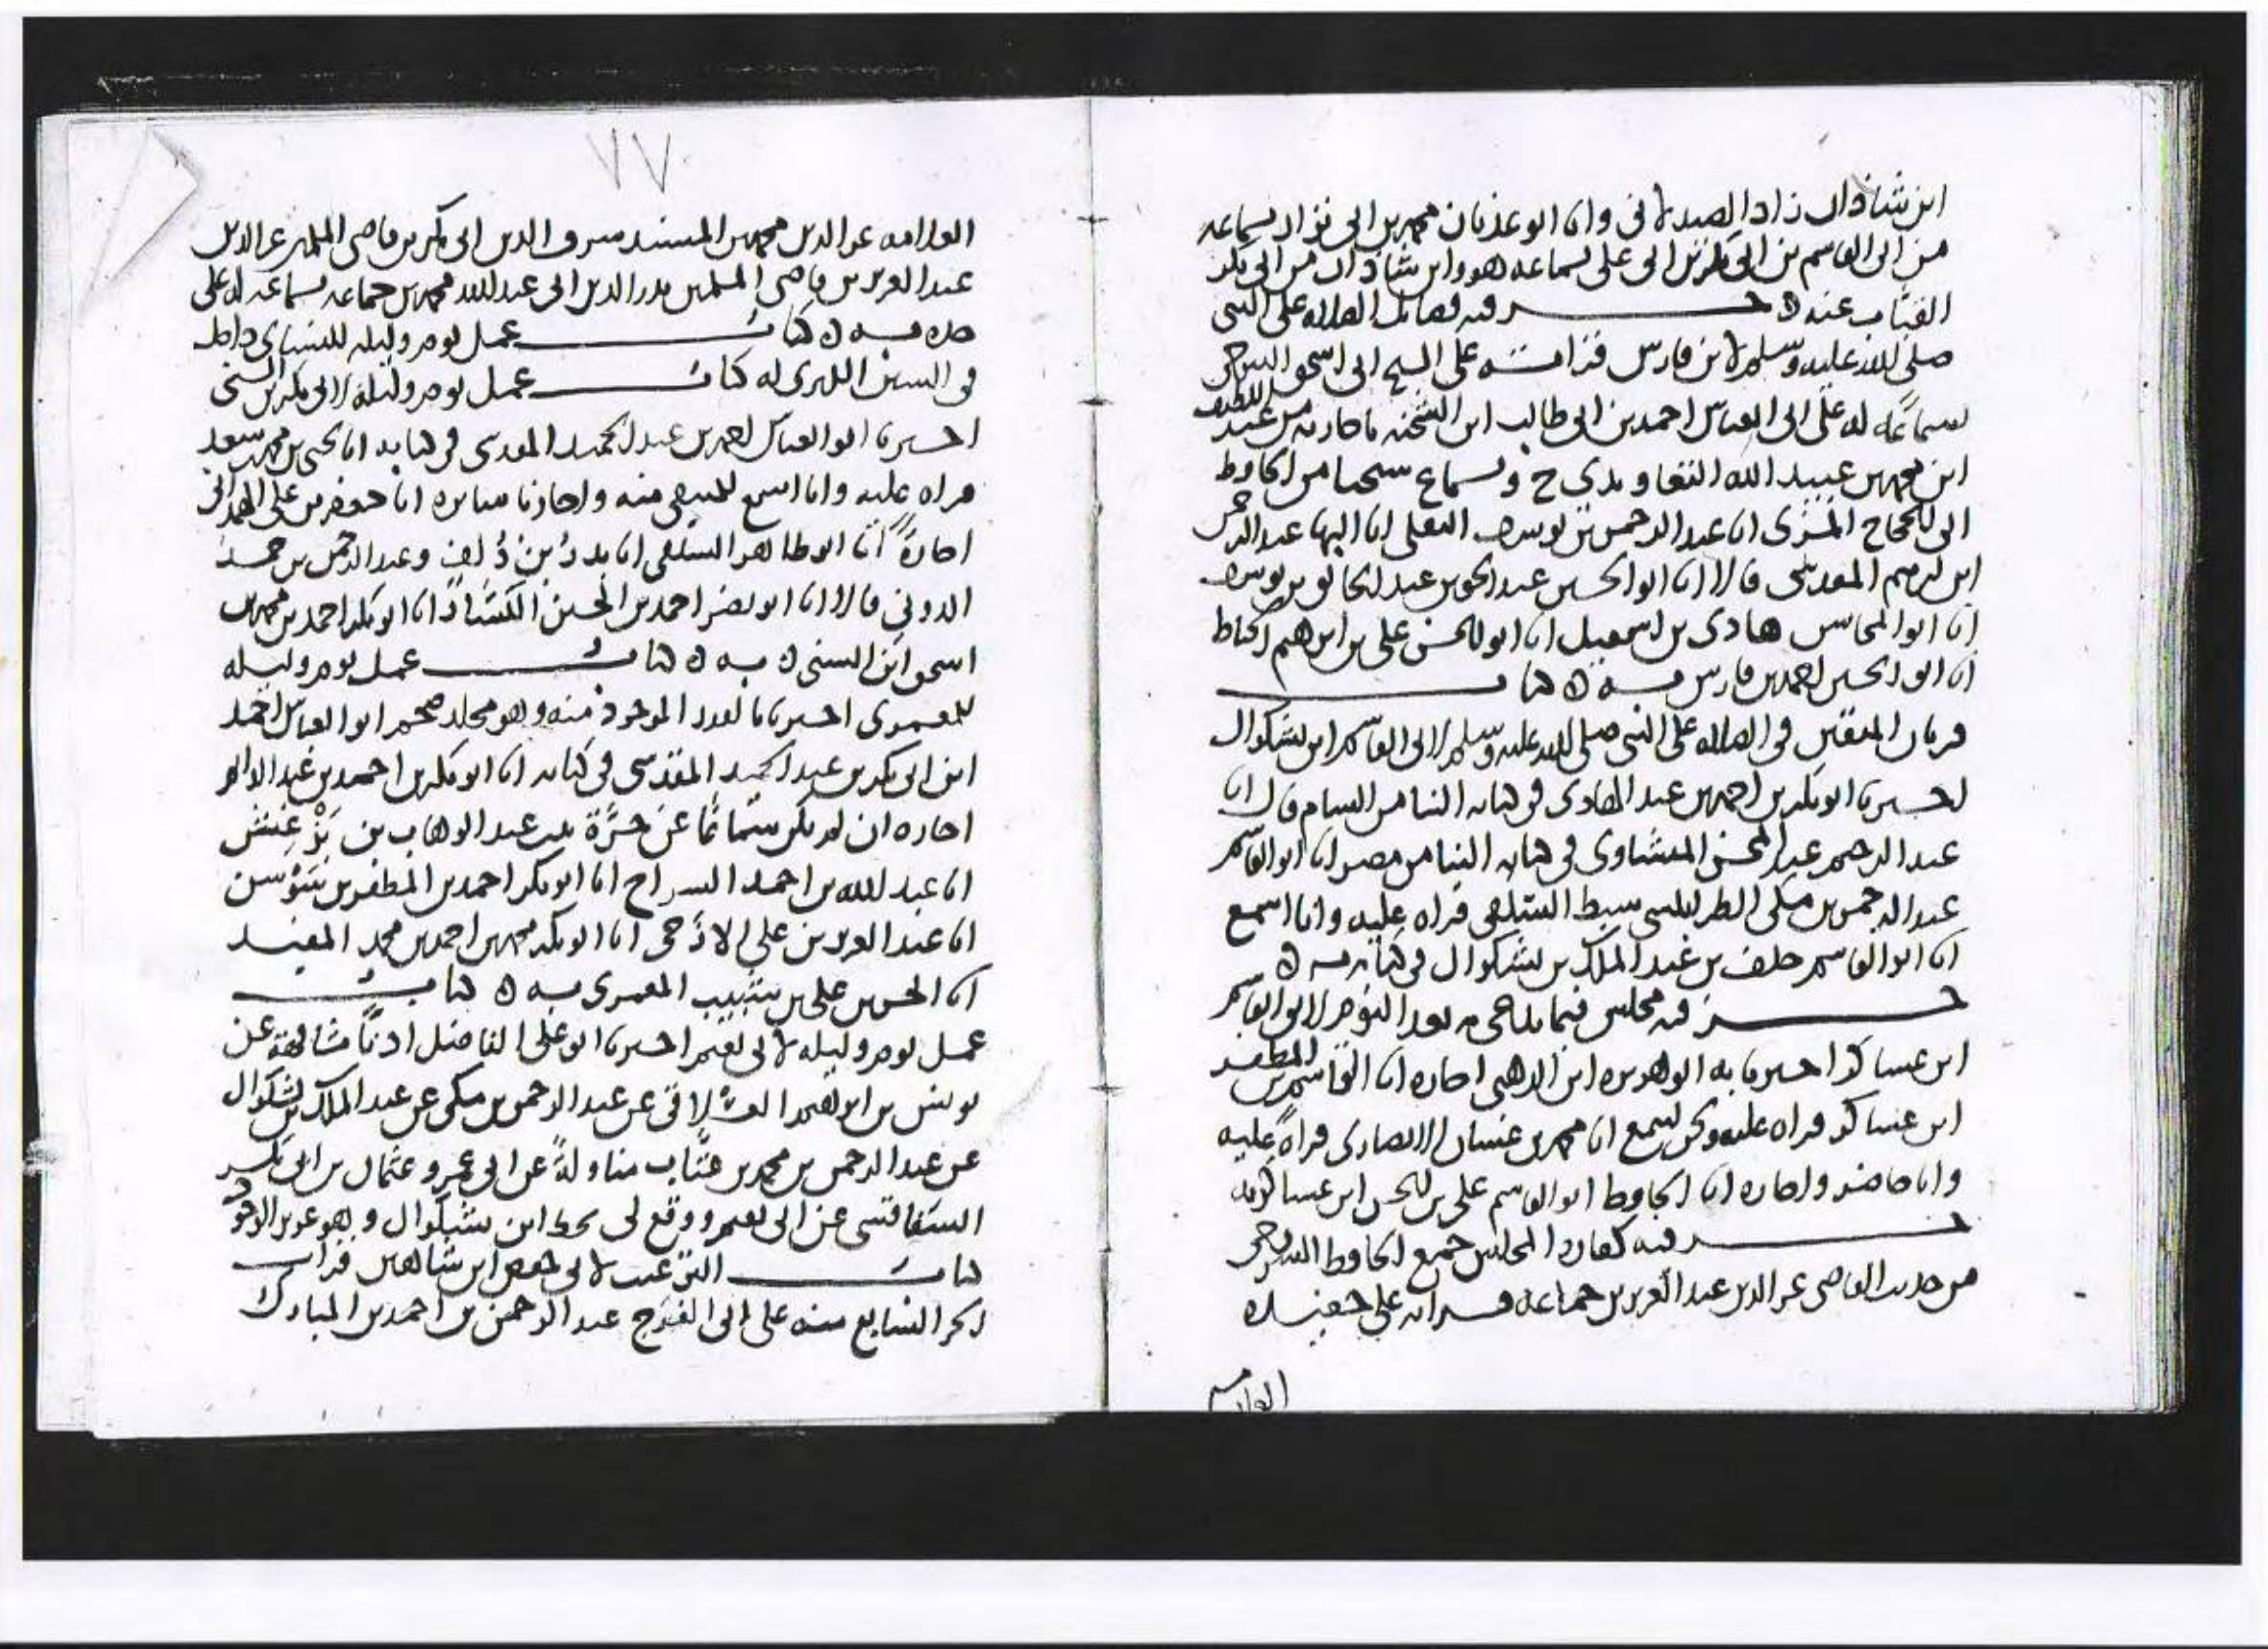 ابن شاذان زاد الصيدلاني وانا ابو عدنان محمد بن ابي نزار بسماعه
من ابي القاسم بن ابي بكر بن ابي علي بسماعه هو وابن شاذان من ابي بكر
القباب عنه ه جـــزء فيه فضائل الصلاه على النبي
صلى الله عليه وسلم لابن فارس قراته على الشيخ ابي اسحق التنوخي
بسماعه له على ابي العباس احمد بن ابي طالب ابن الشحنه باجازته من عبد اللطيف
ابن محمد بن عبيد الله التعاويذي ح وبسماع شيخنا من الحافظ
ابي الحجاج المزي انا عبد الرحمن بن يوسف البعلي انا البها عبد الرحمن
ابن ابرهيم المقدسي قالا انا ابو الحسين عبد الحق بن عبد الخالق بن يوسف
انا ابو المحاسن هادي بن اسمعيل انا ابو الحسن علي بن ابرهيم الحناط
انا ابو الحسين احمد بن فارس به ه كتاب
قربان المتقين في الصلاه على النبي صلى الله عليه وسلم لابي القاسم ابن بشكوال
اخبرنا ابو بكر بن احمد بن عبد الهادي في كتابه الينا من الشام قال انا
عبد الرحيم عبد المحسن المنشاوي في كتابه الينا من مصر انا ابو القاسم
عبد الرحمن بن مكي الطرابلسي سبط السلفي قراه عليه وانا اسمع
انا ابو القاسم خلف بن عبد الملك بن بشكوال في كتابه به ه
جـــزء فيه مجلس فيما يناجى به بعد النوم لابي القاسم
ابن عساكر اخبرنا به ابو هريره ابن الذهبي اجازه انا القاسم بن المظفر
ابن عساكر قراه عليه ونحن نسمع انا محمد بن غسان الانصاري قراه عليه
وانا حاضر واجازه انا الحافظ ابو القاسم علي بن الحسن ابن عساكر به
جـــزء فيه كفارة المجلس جميع الحافظ
من حديث القاضي عز الدين عبد العزيز بن جماعه قراته على حفيده
العلامه
٧٧
العلامه عز الدين محمد بن المسند شرف الدين ابي بكر بن قاضي المسلمين عز الدين
عبد العزيز بن قاضي المسلمين بدر الدين ابي عبد الله محمد بن جماعه بسماعه له على
جده به ه كتاب عمل يوم وليله للنسائي داخل
في السنن الكبرى له كتاب عمل يوم وليله لابي بكر بن السني
اخبرنا ابو العباس احمد بن عبد الحميد المقدسي في كتابه انا يحيى بن محمد بن سعد
قراه عليه وانا اسمع للمنتقى منه واجازنا سائره انا جعفر بن علي الهمداني
اجازةً انا ابو طاهر السلفي انا بدر بن دُلف وعبد الرحمن بن حمد
الدوني قالا انا ابو نصر احمد بن الحسين الكسار انا ابو بكر احمد بن محمد بن
اسحق ابن السني ه به ه كتاب عمل يوم وليله
للمعمري اخبرنا بالقدر الموجود منه وهو مجلد ضخم ابو العباس احمد
ابن ابي بكر بن عبد الحميد المقدسي في كتابه انا ابو بكر بن احمد بن عبد الدايم
اجازه ان لم يكن سماعًا عن حُرَّة بنت عبد الوهاب بن بَزْغش
انا عبد الله بن احمد السراج انا ابو بكر احمد بن المظفر بن سَوْسن
انا عبد العزيز بن علي الازجي انا ابو بكر محمد بن احمد بن محمد المفيد
انا الحسن بن علي بن شبيب المعمري به ه كتاب
عمل يوم وليله لابي نعيم اخبرنا ابو علي الفاضل اذنًا مشافهة عن
يونس بن ابراهيم عن عبد الرحمن بن مكي عن عبد الملك بن بشكوال
عن عبد الرحمن بن محمد بن عتَّاب مناولةً عن ابي عمرو عثمان بن ابي بكر
السفاقسي عن ابي نعيم ووقع لي بخط ابن بشكوال وهو عزيز الوقوع
كتاب الترغيب لابي حفص ابن شاهين قرات
الجز السابع منه على ابي الفرج عبد الرحمن بن احمد بن المبارك